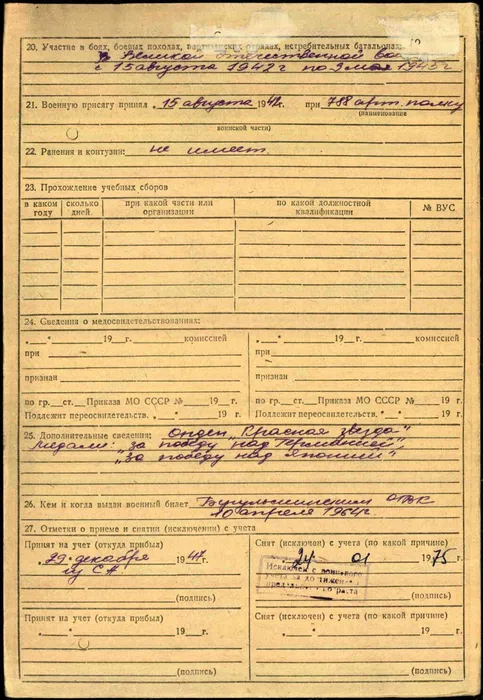 20. Участие в боях, боевых походах, партизанских отрядах, истребительных батальонах:
в Великой Отечественной
с 15 августа 1942 г по 9 мая 1945 г
21. Военную присягу принял „15 августа 1942 г. при 788 арт. полку
(наименование
воинской части)
22. Ранения и контузии: не имеет
23. Прохождение учебных сборов
в каком году сколько дней. при какой части или организации по какой должностной квалификации № ВУС.
24. Сведения о медосвидетельствованиях:
„ " 19 г. комиссией „ " 19 г. комиссией
при при
признан признан
по гр. ст. Приказа МО СССР № по гр. ст. Приказа МО СССР №
Подлежит переосвидетельств. „ " 19 г. Подлежит переосвидетельств. „ " 19 г.
25. Дополнительные сведения: Орден „Красная звезда"
Медали: „за победу над Германией"
„за победу над Японией"
26. Кем и когда выдан военный билет Бугульминским ОВК
10 апреля 1964 г.
27. Отметки о приеме и снятии (исключении) с учета
Принят на учет (откуда прибыл) Снят (исключен) с учета (по какой причине)
„29" декабря 1947 г. „24" 01 1975 г.
из СА
Исключен с воинского
учета за достижением
предельного возраста
(подпись) (подпись)
Принят на учет (откуда прибыл) Снят (исключен) с учета (по какой причине)
„ " 19 г. „ " 19 г.
(подпись) (подпись)